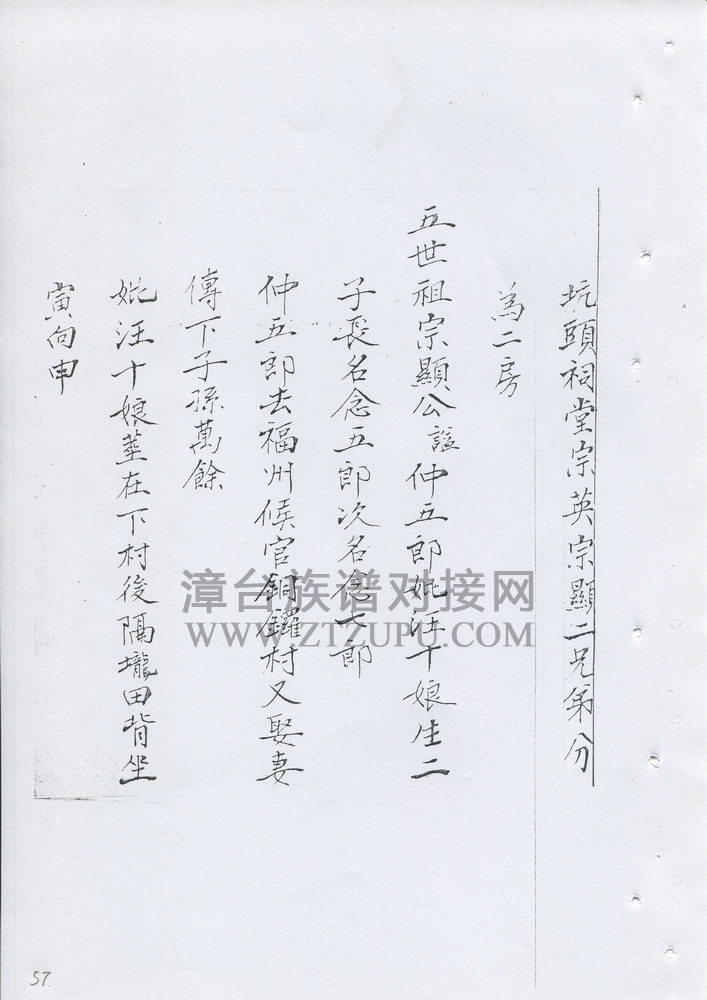 坑頭祠堂宗英宗顯二兄弟分
為二房
五世祖宗顯公諡仲五郎妣汪十娘生二
子長名念五郎次名念七郎
仲五郎去福州候官銅鑼村又娶妻
傳下子孫萬餘
妣汪十娘塟在下村後隔壠田背坐
寅向申
漳台族谱对接网
WWW.ZTZUPU.COM
57